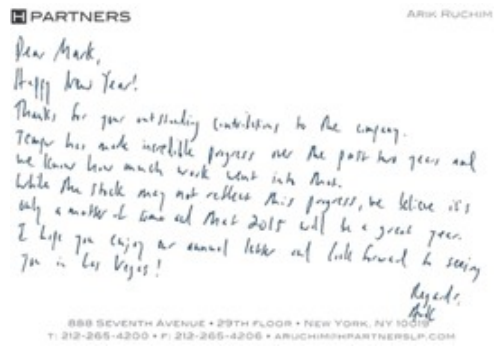 H PARTNERS
ARIK RUCHIM
Dear Mark,
Happy New Year!
Thanks for your outstanding contributions to the company.
Tempur has made incredible progress over the past two years and
we know how much work went into that.
While the stock may not reflect this progress, we believe it's
only a matter of time and that 2015 will be a great year.
I hope you enjoy our annual letter and look forward to seeing
you in Las Vegas!
Regards,
Arik
888 SEVENTH AVENUE • 29TH FLOOR • NEW YORK, NY 10019
T: 212-265-4200 • F: 212-265-4206 • ARUCHIM@HPARTNERSLP.COM